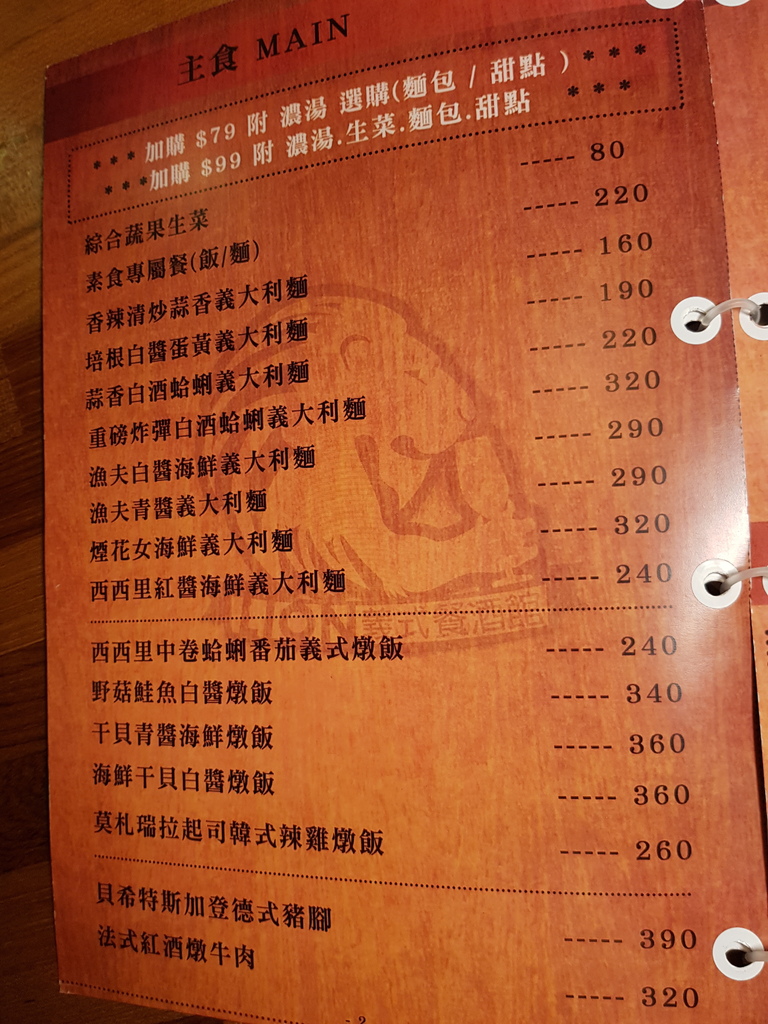 主食 MAIN
*** 加購 $79 附 濃湯 選購(麵包 / 甜點 ) ***
***加購 $99 附 濃湯.生菜.麵包.甜點 ***
綜合蔬果生菜 ----- 80
素食專屬餐(飯/麵) ----- 220
香辣清炒蒜香義大利麵 ----- 160
培根白醬蛋黃義大利麵 ----- 190
蒜香白酒蛤蜊義大利麵 ----- 220
重磅炸彈白酒蛤蜊義大利麵 ----- 320
漁夫白醬海鮮義大利麵 ----- 290
漁夫青醬義大利麵 ----- 290
煙花女海鮮義大利麵 ----- 320
西西里紅醬海鮮義大利麵 ----- 240
義式餐酒館
西西里中卷蛤蜊番茄義式燉飯 ----- 240
野菇鮭魚白醬燉飯 ----- 340
干貝青醬海鮮燉飯 ----- 360
海鮮干貝白醬燉飯 ----- 360
莫札瑞拉起司韓式辣雞燉飯 ----- 260
貝希特斯加登德式豬腳 ----- 390
法式紅酒燉牛肉 ----- 320